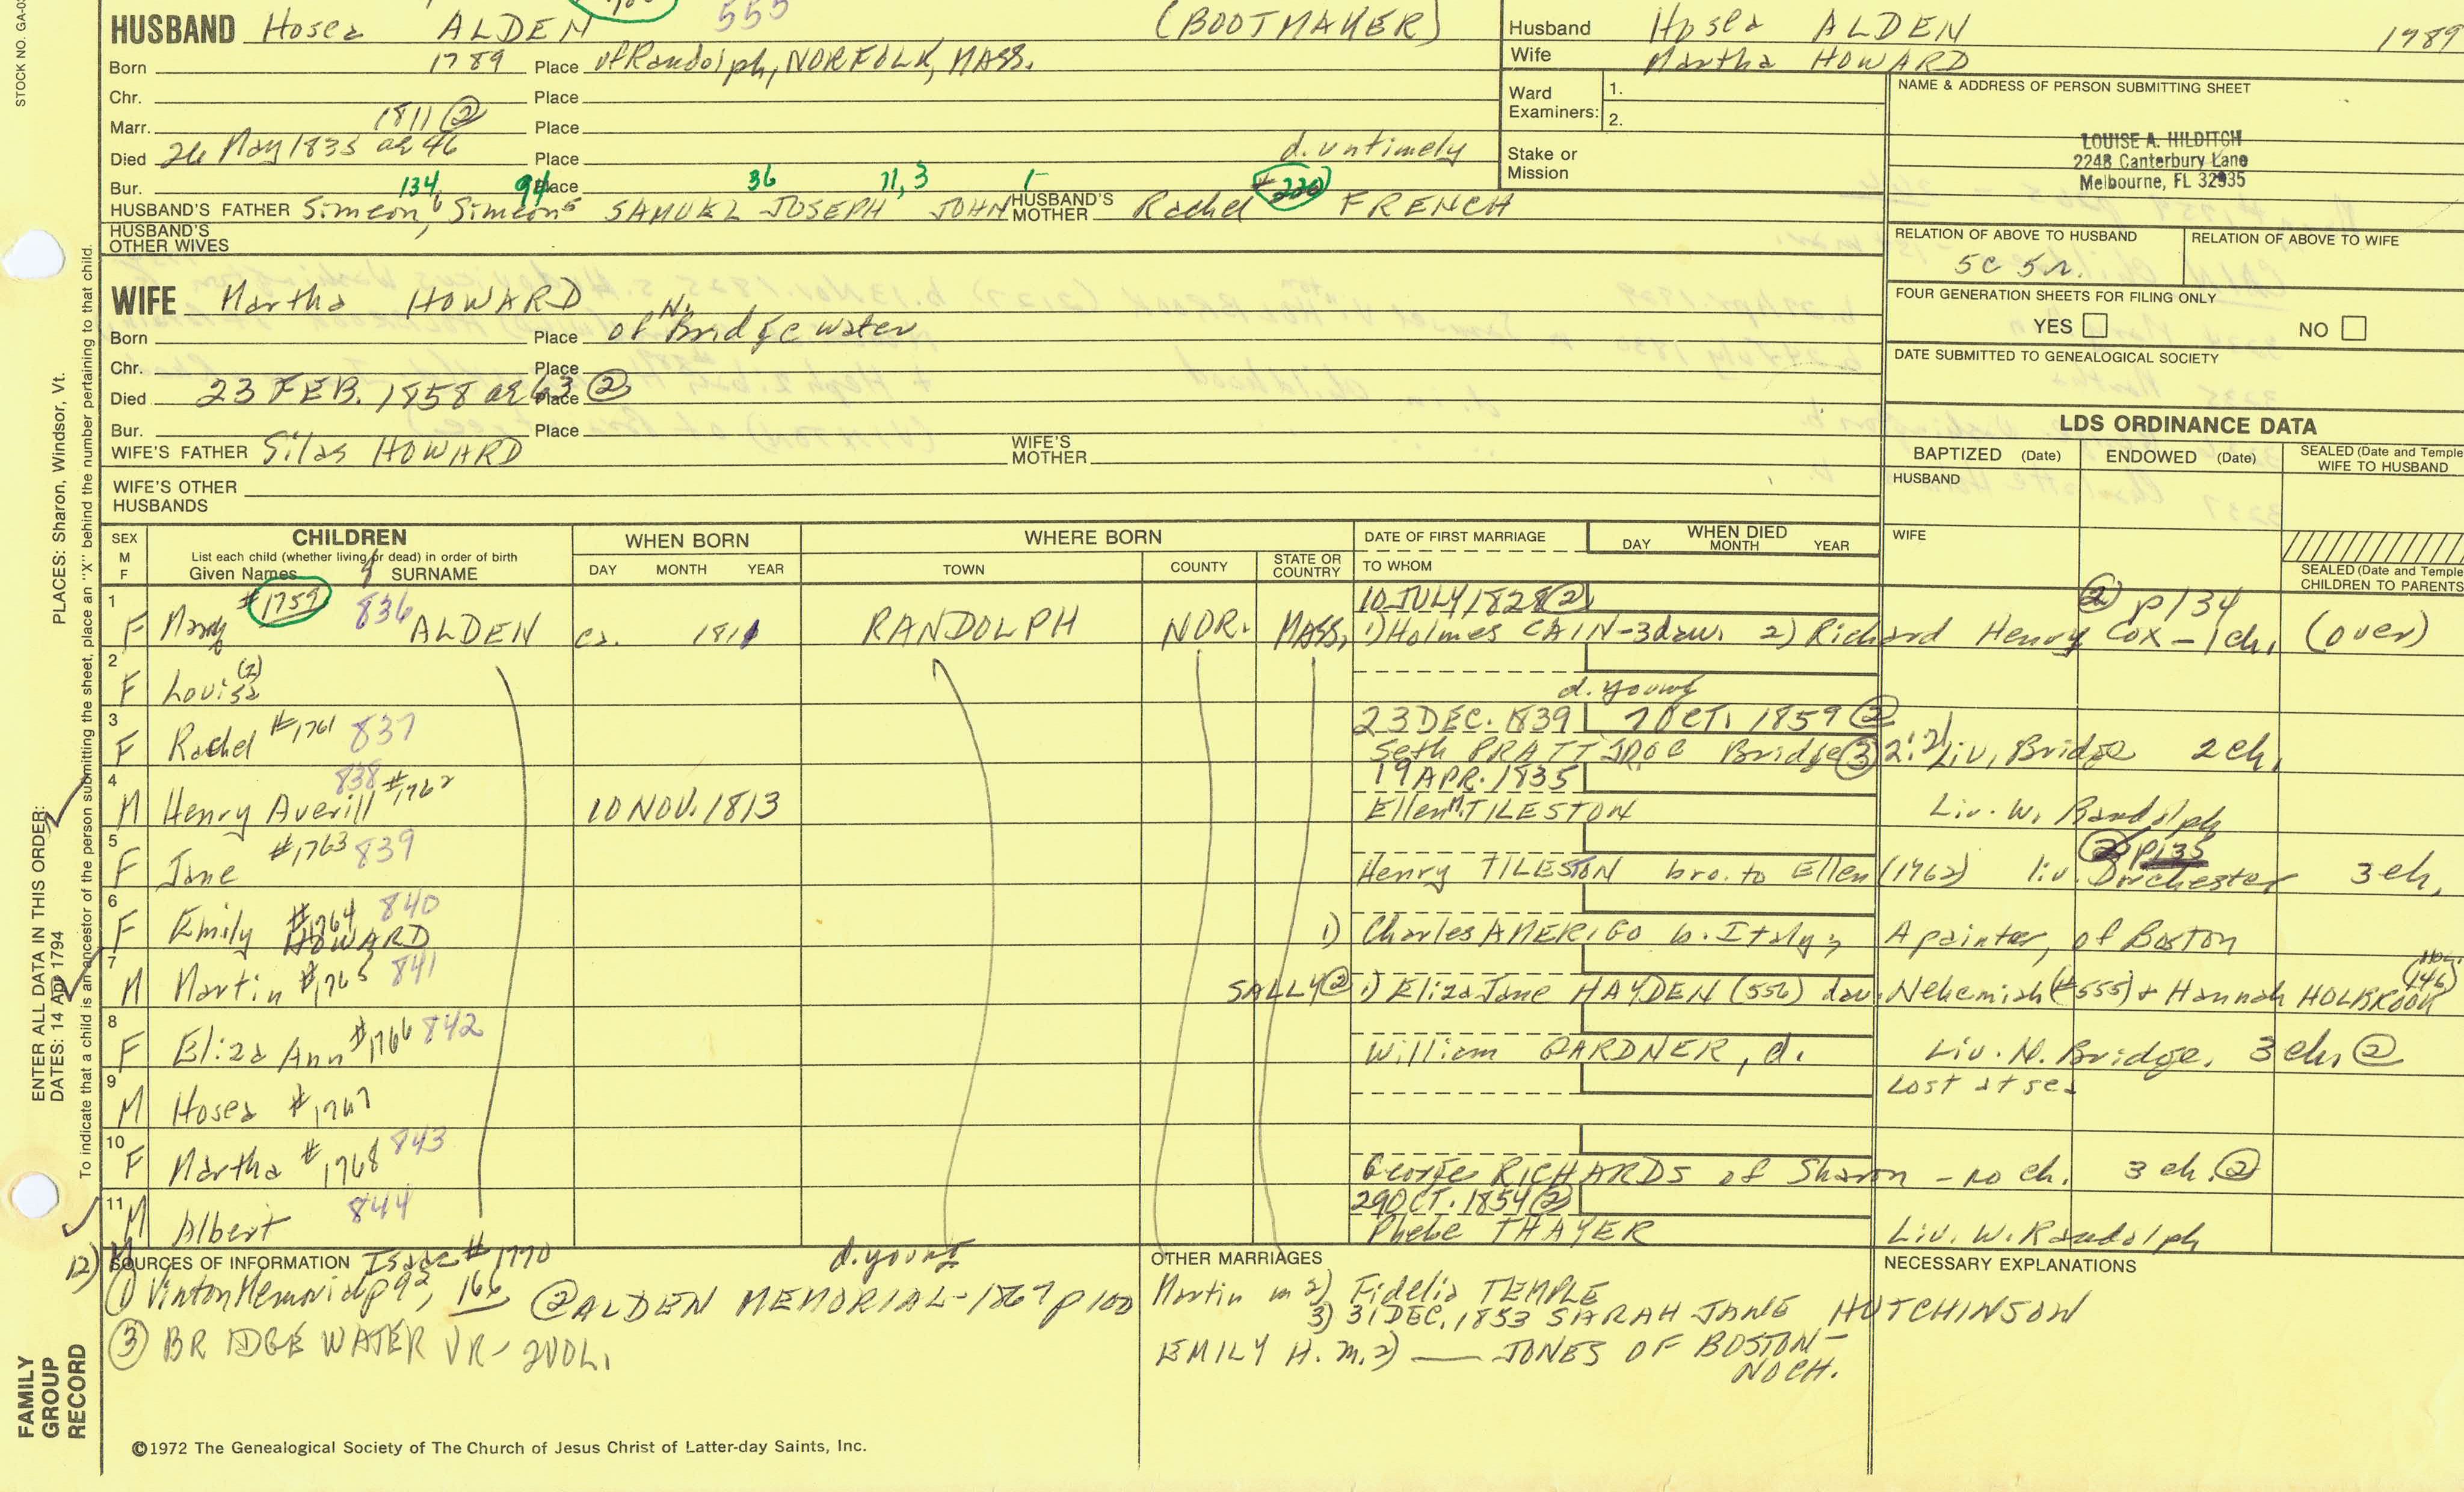 STOCK NO. GA-0
555
HUSBAND Hosea ALDEN (BOOTMAKER)
Born 1789 Place of Randolph, NORFOLK, MASS.
Chr. Place
Marr. 1811 ② Place
Died 26 May 1835 ae 46 Place d. untimely
Bur. Place
134 94 36 11, 3 1-
HUSBAND'S FATHER Simeon6, Simeon5 SAMUEL JOSEPH JOHN HUSBAND'S MOTHER Rachel #220 FRENCH
HUSBAND'S OTHER WIVES
Husband Hosea ALDEN 1789
Wife Martha HOWARD
Ward Examiners: 1.
2.
Stake or Mission
NAME & ADDRESS OF PERSON SUBMITTING SHEET
LOUISE A. HILDITCH
2248 Canterbury Lane
Melbourne, FL 32935
RELATION OF ABOVE TO HUSBAND RELATION OF ABOVE TO WIFE
5C 5r.
FOUR GENERATION SHEETS FOR FILING ONLY
YES NO
DATE SUBMITTED TO GENEALOGICAL SOCIETY
WIFE Martha HOWARD
Born Place of N. Bridgewater
Chr. Place
Died 23 FEB. 1858 ae 63 Place ②
Bur. Place
WIFE'S FATHER Silas HOWARD WIFE'S MOTHER
WIFE'S OTHER HUSBANDS
LDS ORDINANCE DATA
BAPTIZED (Date) ENDOWED (Date) SEALED (Date and Temple WIFE TO HUSBAND
HUSBAND
WIFE
SEALED (Date and Temple CHILDREN TO PARENTS
SEX M F
CHILDREN
List each child (whether living or dead) in order of birth
Given Names SURNAME
WHEN BORN
DAY MONTH YEAR
WHERE BORN
TOWN COUNTY STATE OR COUNTRY
DATE OF FIRST MARRIAGE
TO WHOM
WHEN DIED
DAY MONTH YEAR
1 #1759 836 10 JULY 1828 ② ② p134
F Mary ALDEN ca. 1811 RANDOLPH NOR. MASS. 1) Holmes CAIN - 3 dau. 2) Richard Henry Cox - 1 ch. (over)
2
F Louisa (2) d. young
3 23 DEC. 1839 7 OCT. 1859 ②
F Rachel #1761 837 Seth PRATT JR of Bridge ③ 2:2) Liv. Bridge 2 ch.
4 838 #1762 19 APR. 1835
M Henry Averill 10 NOV. 1813 Ellen M. TILESTON Liv. W. Randolph
5 #1763 839 ② p135
F Jane Henry TILESTON bro. to Ellen (1762) liv. Dorchester 3 ch.
6 #1764 840
F Emily HOWARD 1) Charles AMERIGO b. Italy, A painter, of Boston
7 (146)
M Martin #1765 841 SALLY ② 1) Eliza Jane HAYDEN (556) dau. Nehemiah (#555) + Hannah HOLBROOK
8
F Eliza Ann #1766 842 William GARDNER, d. Liv. N. Bridge. 3 ch. ②
9 Lost at sea
M Hosea #1767
10
F Martha #1768 843 George RICHARDS of Sharon - no ch. 3 ch. ②
11 29 OCT. 1854 ②
M Albert 844 Phebe THAYER Liv. W. Randolph
12) M Isaac #1770 d. young
SOURCES OF INFORMATION
① Vinton Memorial p92, 166 ② ALDEN MEMORIAL - 1867 p100
③ BRIDGEWATER VR - 2VOL.
OTHER MARRIAGES
Martin m 2) Fidelia TEMPLE
3) 31 DEC. 1853 SARAH JANE HUTCHINSON
EMILY H. m. 2) — JONES OF BOSTON -
NO CH.
NECESSARY EXPLANATIONS
©1972 The Genealogical Society of The Church of Jesus Christ of Latter-day Saints, Inc.
FAMILY GROUP RECORD
ENTER ALL DATA IN THIS ORDER:
DATES: 14 Apr 1794 PLACES: Sharon, Windsor, Vt.
To indicate that a child is an ancestor of the person submitting the sheet, place an "X" behind the number pertaining to that child.